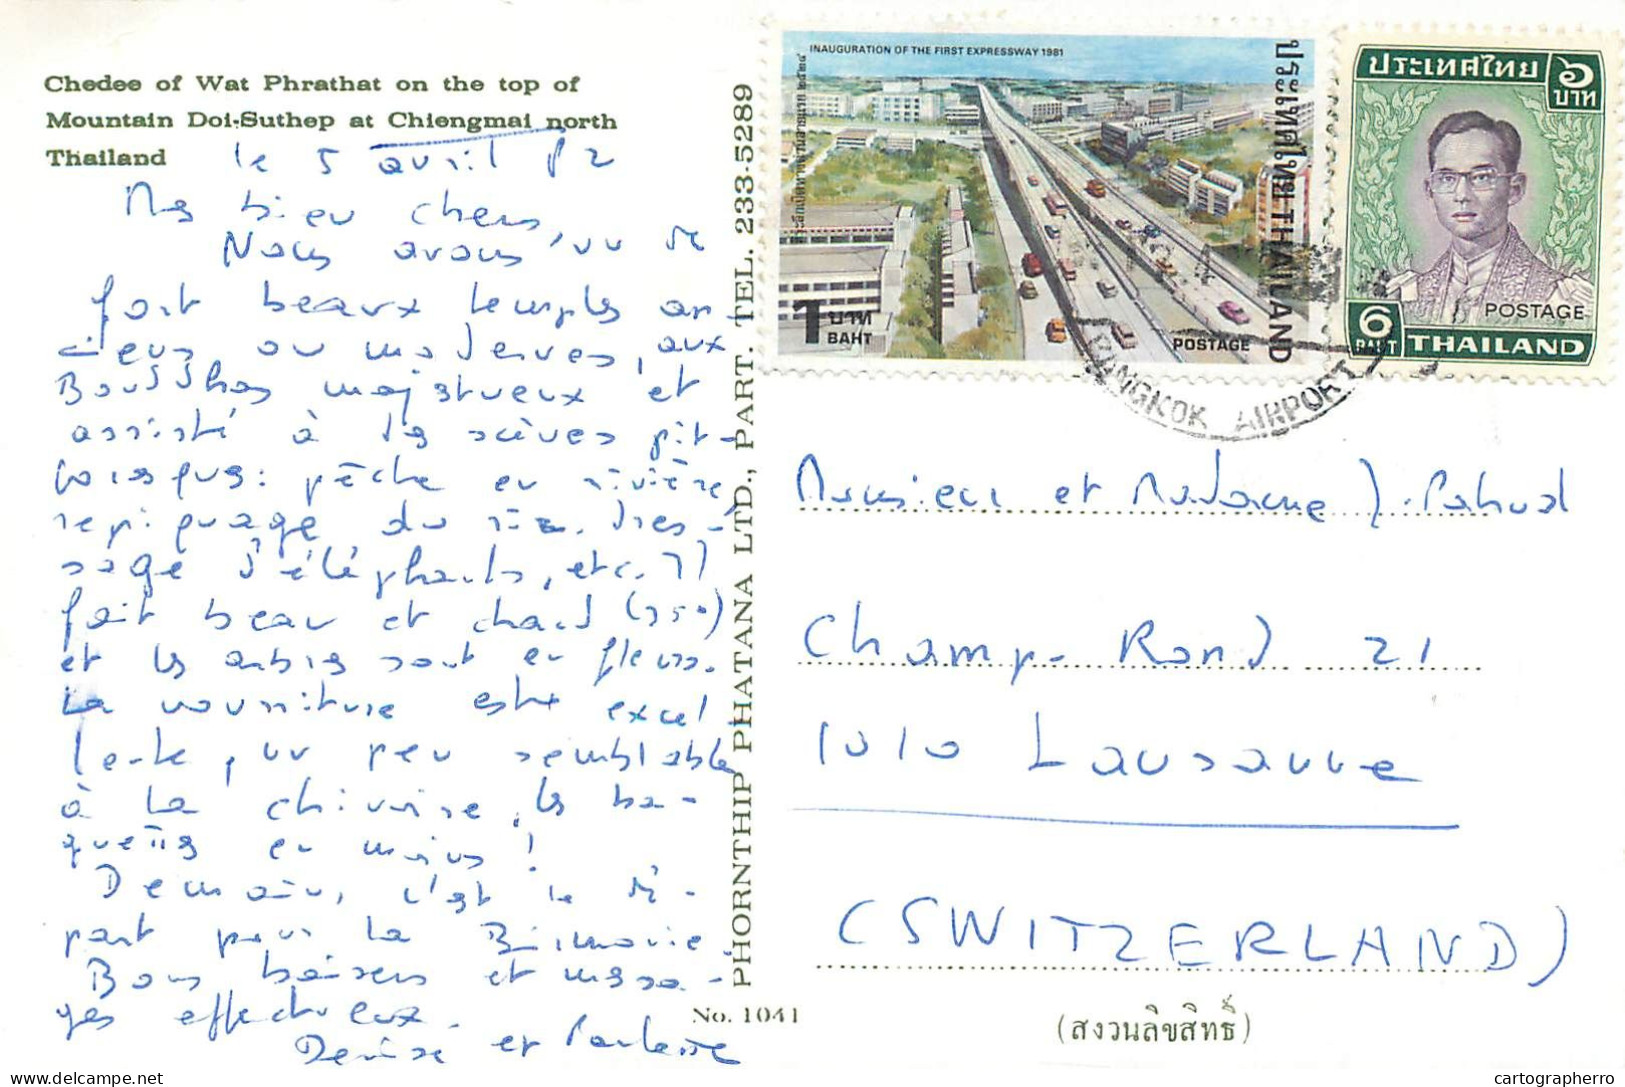 Chedee of Wat Phrathat on the top of
Mountain Doi-Suthep at Chiengmai north
Thailand
le 5 avril 82
Mes bien chers,
Nous avons vu de
fort beaux temples an-
ciens ou modernes, aux
Bouddhas majestueux et
assisté à des scènes pit-
toresques: pêche en rivière
repiquage du riz, dres-
sage d'éléphants, etc. Il
fait beau et chaud (35°)
et les arbres sont en fleurs.
La nourriture est excel
lente, un peu semblable
à la chinoise, les ba-
guettes en moins!
Demain, c'est le dé-
part pour la Birmanie.
Bons baisers et messa-
ges affectueux.
Denise et
PHORNTHIP PHATANA LTD., PART. TEL. 233-5289
No. 1041
INAUGURATION OF THE FIRST EXPRESSWAY 1981
ประเทศไทย THAILAND
1 บาท
BAHT
POSTAGE
ประเทศไทย ๖
บาท
POSTAGE
6
BAHT THAILAND
BANGKOK AIRPORT
Monsieur et Madame J. Pahud
Champ-Rond 21
1010 Lausanne
(SWITZERLAND)
(สงวนลิขสิทธิ์)
cartographerro